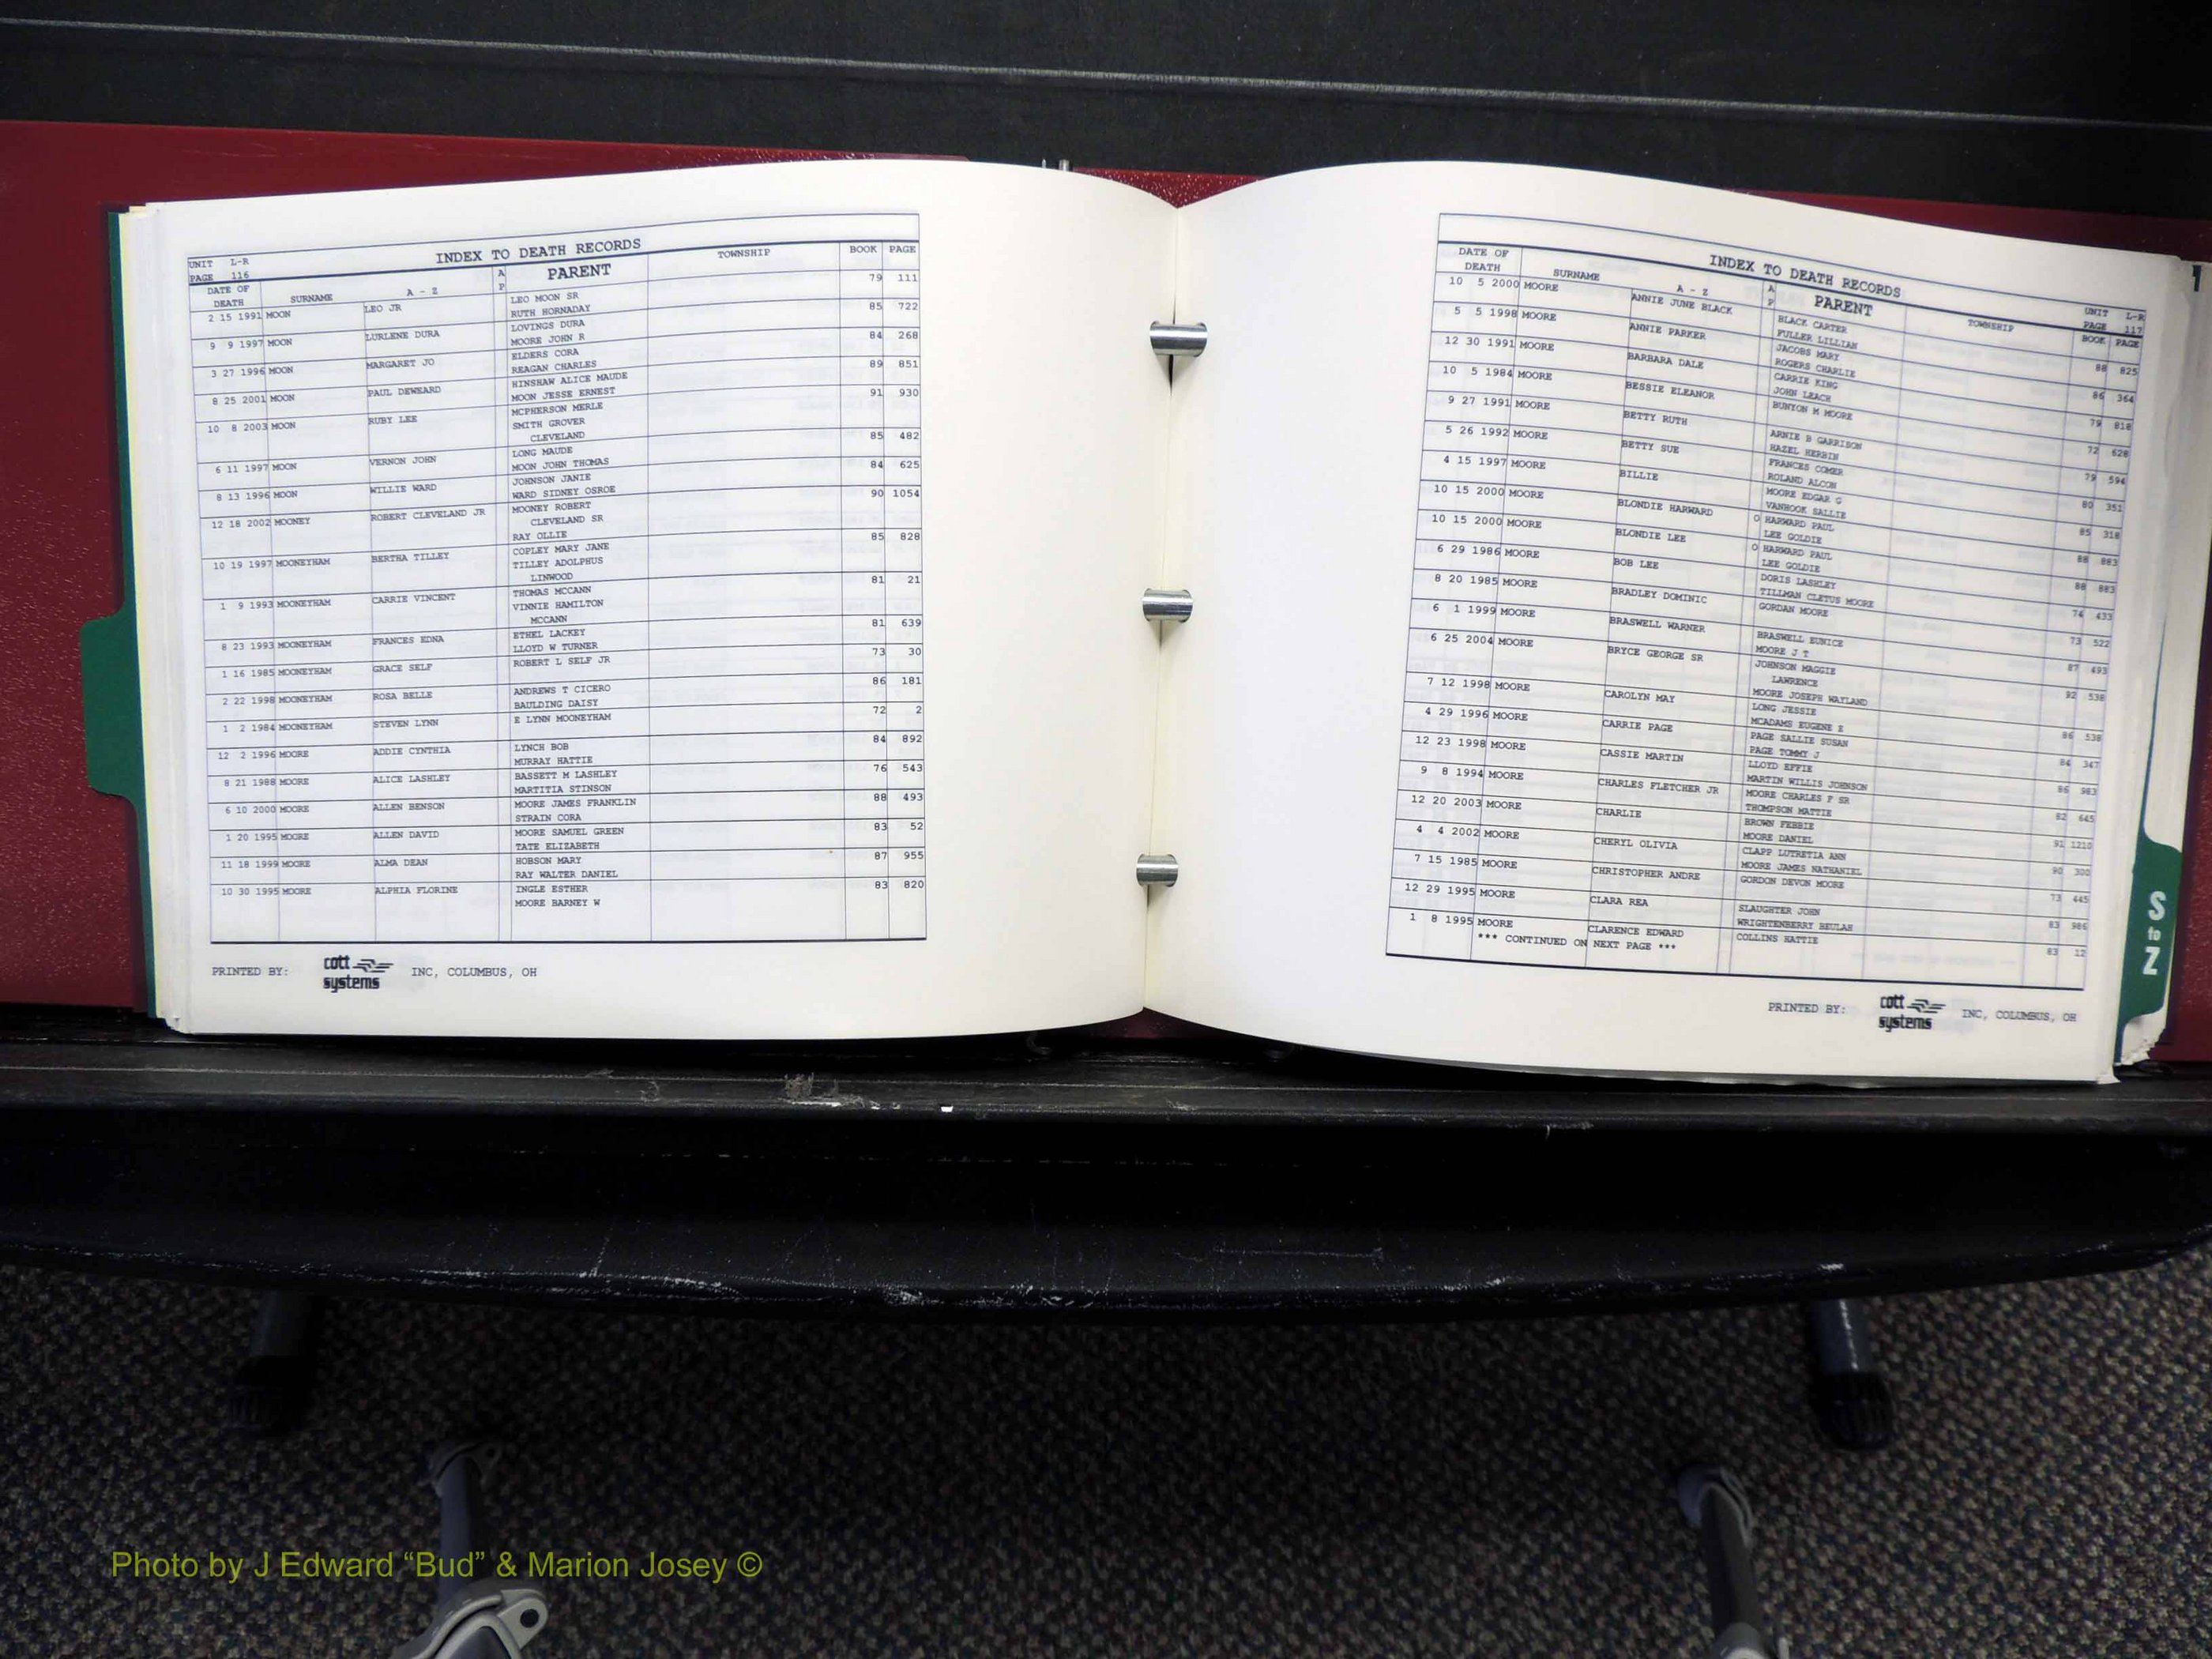 UNIT L-R INDEX TO DEATH RECORDS
PAGE 116
DATE OF DEATH SURNAME A - Z A P PARENT TOWNSHIP BOOK PAGE
2 15 1991 MOON LEO JR LEO MOON SR 79 111
RUTH HORNADAY
9 9 1997 MOON LURLENE DURA LOVINGS DURA 85 722
MOORE JOHN R
3 27 1996 MOON MARGARET JO ELDERS CORA 84 268
REAGAN CHARLES
8 25 2001 MOON PAUL DEWEARD HINSHAW ALICE MAUDE 89 851
MOON JESSE ERNEST
10 8 2003 MOON RUBY LEE MCPHERSON MERLE 91 930
SMITH GROVER
CLEVELAND
6 11 1997 MOON VERNON JOHN LONG MAUDE 85 482
MOON JOHN THOMAS
8 13 1996 MOON WILLIE WARD JOHNSON JANIE 84 625
WARD SIDNEY OSROE
12 18 2002 MOONEY ROBERT CLEVELAND JR MOONEY ROBERT 90 1054
CLEVELAND SR
RAY OLLIE
10 19 1997 MOONEYHAM BERTHA TILLEY COPLEY MARY JANE 85 828
TILLEY ADOLPHUS
LINWOOD
1 9 1993 MOONEYHAM CARRIE VINCENT THOMAS MCCANN 81 21
VINNIE HAMILTON
MCCANN
8 23 1993 MOONEYHAM FRANCES EDNA ETHEL LACKEY 81 639
LLOYD W TURNER
1 16 1985 MOONEYHAM GRACE SELF ROBERT L SELF JR 73 30
2 22 1998 MOONEYHAM ROSA BELLE ANDREWS T CICERO 86 181
BAULDING DAISY
1 2 1984 MOONEYHAM STEVEN LYNN E LYNN MOONEYHAM 72 2
12 2 1996 MOORE ADDIE CYNTHIA LYNCH BOB 84 892
MURRAY HATTIE
8 21 1988 MOORE ALICE LASHLEY BASSETT M LASHLEY 76 543
MARTITIA STINSON
6 10 2000 MOORE ALLEN BENSON MOORE JAMES FRANKLIN 88 493
STRAIN CORA
1 20 1995 MOORE ALLEN DAVID MOORE SAMUEL GREEN 83 52
TATE ELIZABETH
11 18 1999 MOORE ALMA DEAN HOBSON MARY 87 955
RAY WALTER DANIEL
10 30 1995 MOORE ALPHIA FLORINE INGLE ESTHER 83 820
MOORE BARNEY W
PRINTED BY: cott systems INC, COLUMBUS, OH
INDEX TO DEATH RECORDS UNIT L-R
PAGE 117
DATE OF DEATH SURNAME A - Z A P PARENT TOWNSHIP BOOK PAGE
10 5 2000 MOORE ANNIE JUNE BLACK BLACK CARTER 88 825
FULLER LILLIAN
5 5 1998 MOORE ANNIE PARKER JACOBS MARY 86 364
ROGERS CHARLIE
12 30 1991 MOORE BARBARA DALE CARRIE KING 79 818
JOHN LEACH
10 5 1984 MOORE BESSIE ELEANOR BUNYON M MOORE 72 628
9 27 1991 MOORE BETTY RUTH ARNIE B GARRISON 79 594
HAZEL HERBIN
5 26 1992 MOORE BETTY SUE FRANCES COMER 80 351
ROLAND ALCON
4 15 1997 MOORE BILLIE MOORE EDGAR G 85 318
VANHOOK SALLIE
10 15 2000 MOORE BLONDIE HARWARD O HARWARD PAUL 88 883
LEE GOLDIE
10 15 2000 MOORE BLONDIE LEE O HARWARD PAUL 88 883
LEE GOLDIE
6 29 1986 MOORE BOB LEE DORIS LASHLEY 74 433
TILLMAN CLETUS MOORE
8 20 1985 MOORE BRADLEY DOMINIC GORDAN MOORE 73 522
6 1 1999 MOORE BRASWELL WARNER BRASWELL EUNICE 87 493
MOORE J T
6 25 2004 MOORE BRYCE GEORGE SR JOHNSON MAGGIE 92 538
LAWRENCE
MOORE JOSEPH WAYLAND
7 12 1998 MOORE CAROLYN MAY LONG JESSIE 86 538
MCADAMS EUGENE E
4 29 1996 MOORE CARRIE PAGE PAGE SALLIE SUSAN 84 347
PAGE TOMMY J
12 23 1998 MOORE CASSIE MARTIN LLOYD EFFIE 86 983
MARTIN WILLIS JOHNSON
9 8 1994 MOORE CHARLES FLETCHER JR MOORE CHARLES F SR 82 645
THOMPSON MATTIE
12 20 2003 MOORE CHARLIE BROWN FEBBIE 91 1210
MOORE DANIEL
4 4 2002 MOORE CHERYL OLIVIA CLAPP LUTRETIA ANN 90 300
MOORE JAMES NATHANIEL
7 15 1985 MOORE CHRISTOPHER ANDRE GORDON DEVON MOORE 73 445
12 29 1995 MOORE CLARA REA SLAUGHTER JOHN 83 986
WRIGHTENBERRY BEULAH
1 8 1995 MOORE CLARENCE EDWARD COLLINS HATTIE 83 12
*** CONTINUED ON NEXT PAGE ***
PRINTED BY: cott systems INC, COLUMBUS, OH
S to Z
Photo by J Edward “Bud” & Marion Josey ©